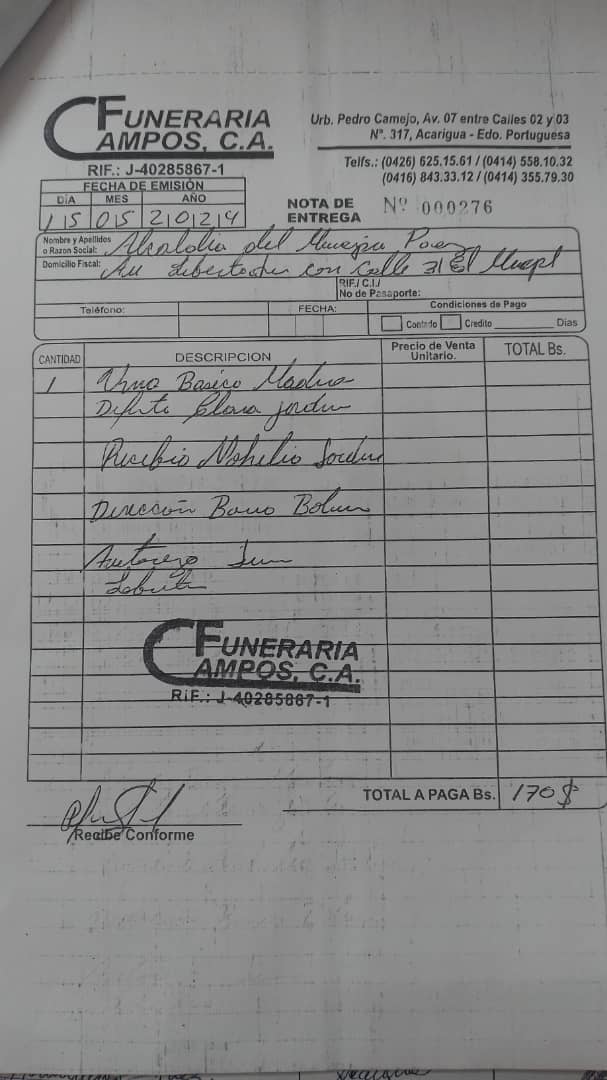 CFUNERARIA
CAMPOS, C.A.
RIF.: J-40285867-1
Urb. Pedro Camejo, Av. 07 entre Calles 02 y 03
N°. 317, Acarigua - Edo. Portuguesa
Telfs.: (0426) 625.15.61 / (0414) 558.10.32
(0416) 843.33.12 / (0414) 355.79.30
FECHA DE EMISIÓN
DÍA MES AÑO
15 05 2024
NOTA DE ENTREGA Nº 000276
Nombre y Apellidos o Razon Social: Alcaldia del Páez
Domicilio Fiscal: Av Libertador con Calle 31
RIF./ C.I./
No de Pasaporte:
Teléfono: FECHA: Condiciones de Pago
Contado Credito Dias
CANTIDAD DESCRIPCION Precio de Venta Unitario. TOTAL Bs.
1 Urna Basico Madera
Difunto Clara Jordan
Recibio Jordan
Dirección
Autorizo
FUNERARIA
CAMPOS, C.A.
RIF.: J-40285867-1
TOTAL A PAGA Bs. 170 $
Recibe Conforme